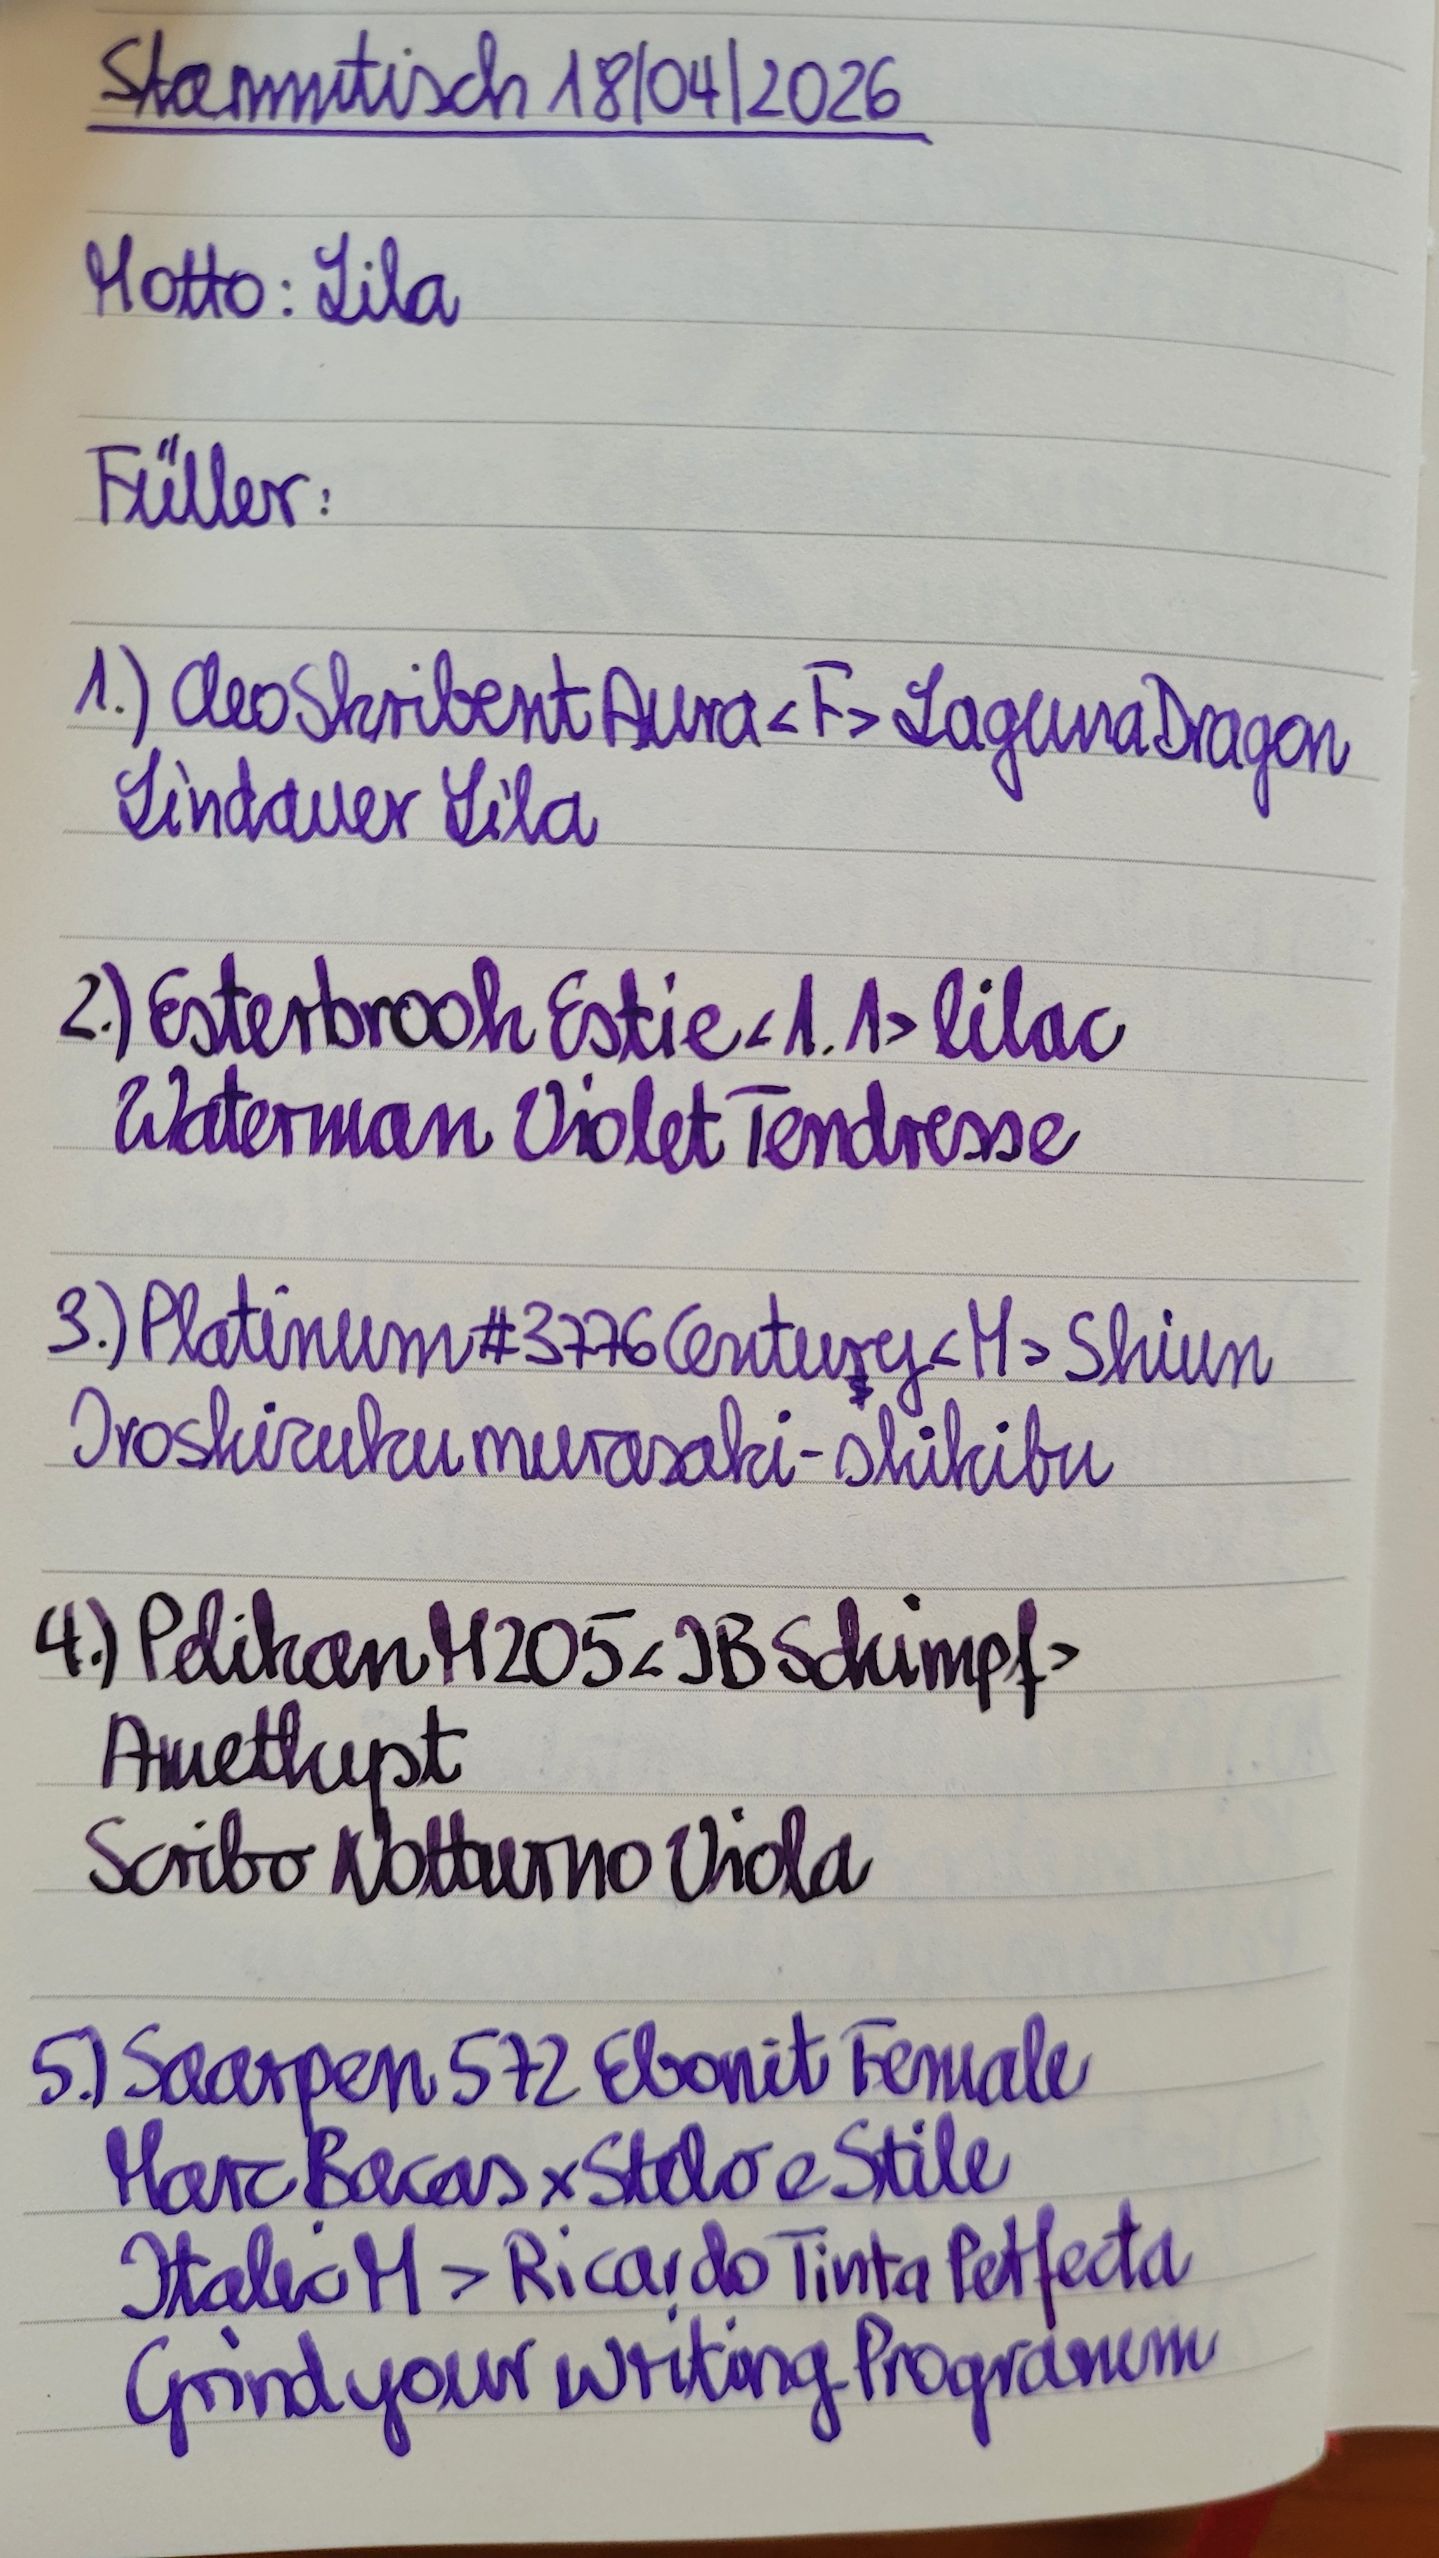 Stammtisch 18/04/2026
Motto: Lila
Füller:
1.) Cleo Skribent Aura <F> Laguna Dragon
Lindauer Lila
2.) Esterbrook Estie <1.1> lilac
Waterman Violet Tendresse
3.) Platinum #3776 Century <M> Shiun
Iroshizuku murasaki-shikibu
4.) Pelikan M205 <JB Schimpf>
Amethyst
Scribo Notturno Viola
5.) Saarpen 572 Ebonit Female
Marc Bacas x Stilo e Stile
Italic M > Ricardo Tinta Perfecta
Grind your writing Programm